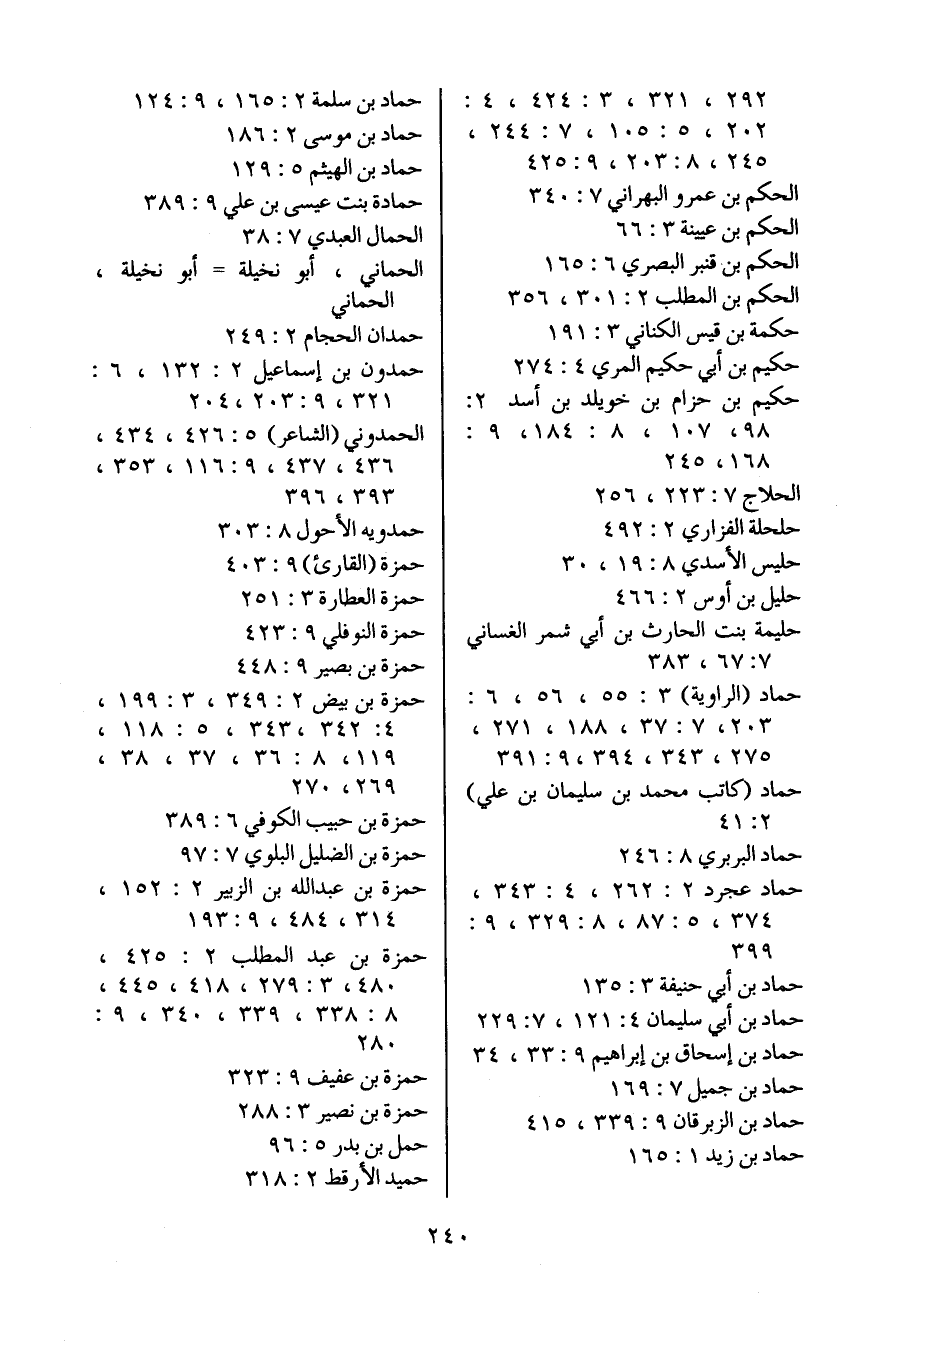 ٢٩٢ ، ٣٢١ ، ٣ : ٤٢٤ ، ٤ :
٢٠٢ ، ٥ : ١٠٥ ، ٧ : ٢٤٤ ،
٢٤٥ ، ٨ : ٢٠٣ ، ٩ : ٤٢٥
الحكم بن عمرو البهراني ٧ : ٣٤٠
الحكم بن عيينة ٣ : ٦٦
الحكم بن قنبر البصري ٦ : ١٦٥
الحكم بن المطلب ٢ : ٣٠١ ، ٣٥٦
حكمة بن قيس الكناني ٣ : ١٩١
حكيم بن أبي حكيم المري ٤ : ٢٧٤
حكيم بن حزام بن خويلد بن أسد ٢:
٩٨، ١٠٧ ، ٨ : ١٨٤، ٩ :
١٦٨، ٢٤٥
الحلاج ٧ : ٢٢٣ ، ٢٥٦
حلحلة الفزاري ٢ : ٤٩٢
حليس الأسدي ٨ : ١٩ ، ٣٠
حليل بن أوس ٢ : ٤٦٦
حليمة بنت الحارث بن أبي شمر الغساني
٧: ٦٧ ، ٣٨٣
حماد (الراوية) ٣ : ٥٥ ، ٥٦ ، ٦ :
٢٠٣، ٧ : ٣٧ ، ١٨٨ ، ٢٧١ ،
٢٧٥ ، ٣٤٣ ، ٣٩٤ ، ٩ : ٣٩١
حماد (كاتب محمد بن سليمان بن علي)
٢ : ٤١
حماد البربري ٨ : ٢٤٦
حماد عجرد ٢ : ٢٦٢ ، ٤ : ٣٤٣ ،
٣٧٤ ، ٥ : ٨٧ ، ٨ : ٣٢٩ ، ٩ :
٣٩٩
حماد بن أبي حنيفة ٣ : ١٣٥
حماد بن أبي سليمان ٤ : ١٢١ ، ٧: ٢٢٩
حماد بن إسحاق بن إبراهيم ٩ : ٣٣ ، ٣٤
حماد بن جميل ٧ : ١٦٩
حماد بن الزبرقان ٩ : ٣٣٩ ، ٤١٥
حماد بن زيد ١ : ١٦٥
حماد بن سلمة ٢ : ١٦٥ ، ٩ : ١٢٤
حماد بن موسى ٢ : ١٨٦
حماد بن الهيثم ٥ : ١٢٩
حمادة بنت عيسى بن علي ٩ : ٣٨٩
الحمال العبدي ٧ : ٣٨
الحماني ، أبو نخيلة = أبو نخيلة ،
الحماني
حمدان الحجام ٢ : ٢٤٩
حمدون بن إسماعيل ٢ : ١٣٢ ، ٦ :
٣٢١ ، ٩ : ٢٠٣ ، ٢٠٤
الحمدوني (الشاعر) ٥ : ٤٢٦ ، ٤٣٤ ،
٤٣٦ ، ٤٣٧ ، ٩ : ١١٦ ، ٣٥٣ ،
٣٩٣ ، ٣٩٦
حمدويه الأحول ٨ : ٣٠٣
حمزة (القارئ) ٩ : ٤٠٣
حمزة العطارة ٣ : ٢٥١
حمزة النوفلي ٩ : ٤٢٣
حمزة بن بصير ٩ : ٤٤٨
حمزة بن بيض ٢ : ٣٤٩ ، ٣ : ١٩٩ ،
٤ : ٣٤٢ ، ٣٤٣ ، ٥ : ١١٨ ،
١١٩، ٨ : ٣٦ ، ٣٧ ، ٣٨ ،
٢٦٩، ٢٧٠
حمزة بن حبيب الكوفي ٦ : ٣٨٩
حمزة بن الضليل البلوي ٧ : ٩٧
حمزة بن عبدالله بن الزبير ٢ : ١٥٢ ،
٣١٤ ، ٤٨٤ ، ٩ : ١٩٣
حمزة بن عبد المطلب ٢ : ٤٢٥ ،
٤٨٠، ٣ : ٢٧٩ ، ٤١٨ ، ٤٤٥ ،
٨ : ٣٣٨ ، ٣٣٩ ، ٣٤٠ ، ٩ :
٢٨٠
حمزة بن عفيف ٩ : ٣٢٣
حمزة بن نصير ٣ : ٢٨٨
حمل بن بدر ٥ : ٩٦
حميد الأرقط ٢ : ٣١٨
٢٤٠